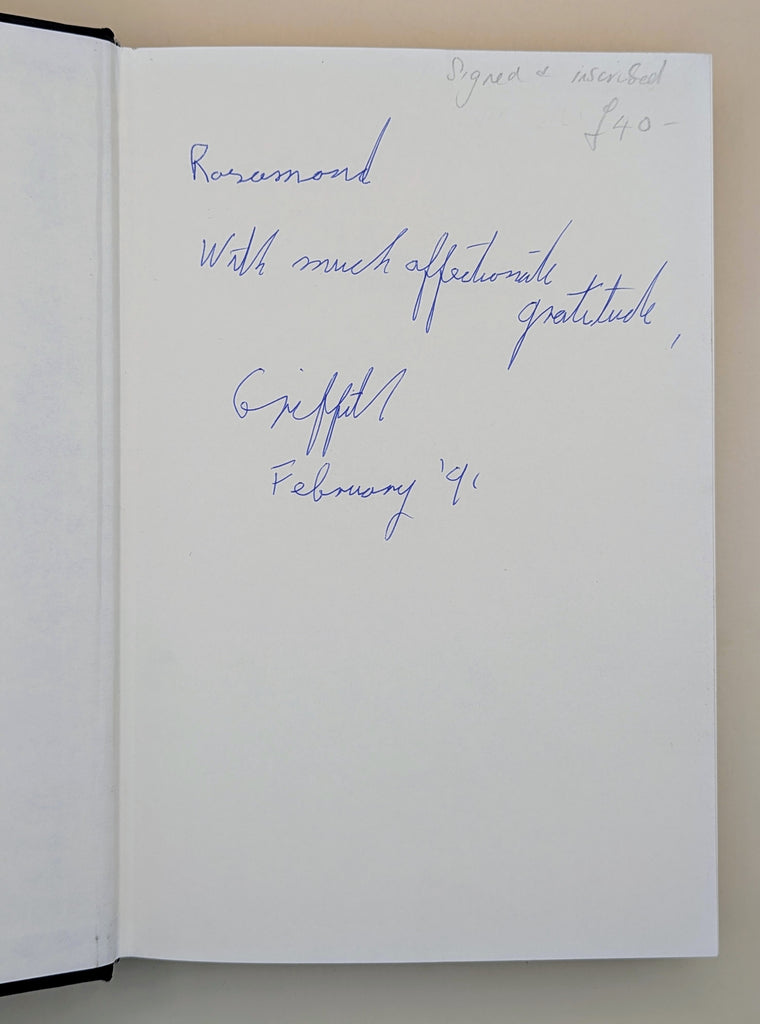 Signed & inscribed
£40-
Rosamond
With much affectionate
gratitude,
Griffith
February '91